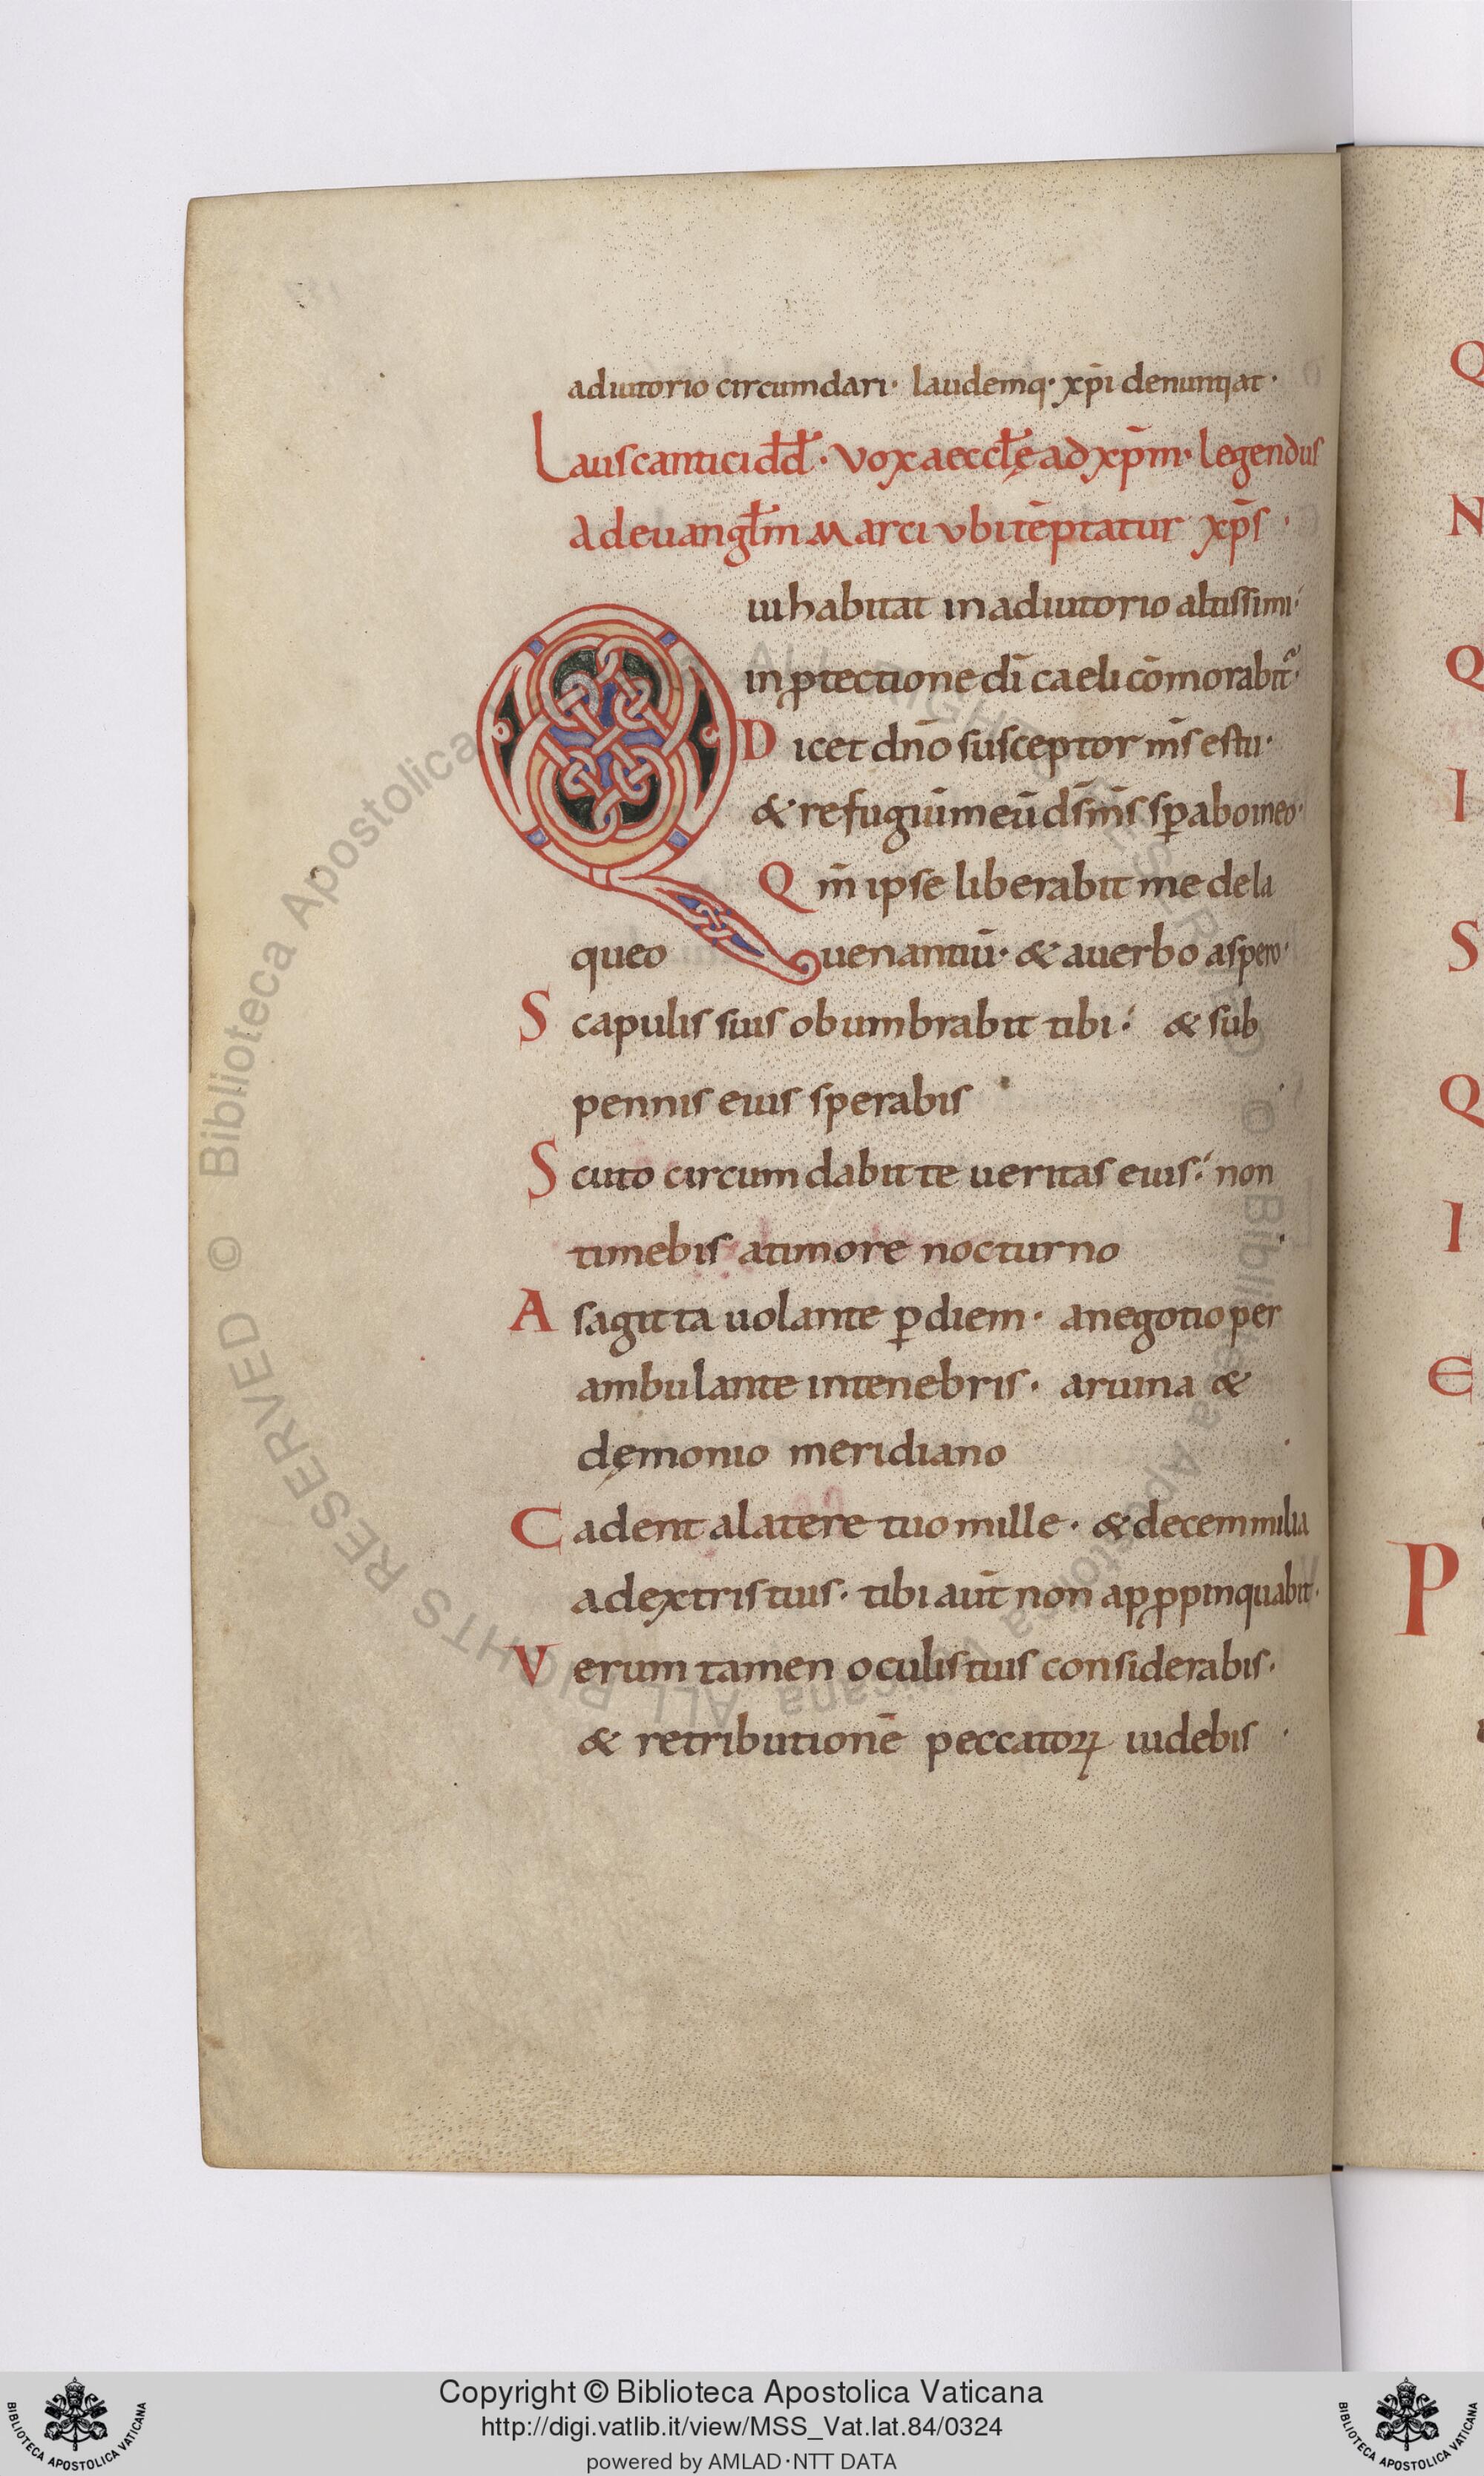 adiutorio circumdari· laudemq· xp̄i denuntiat·
Laus cantici d̄d̄· vox aeccl̄ę ad xp̄m· legendus
ad euangl̄m Marci vbi tēptatur xp̄s·
Qui habitat in adiutorio altissimi·
in ꝓtectione dī caeli cōmorabit᷑·
Dicet dn̄o susceptor m̄s es tu·
& refugiū meū ds̄ m̄s sꝑabo in eo·
Qm̄ ipse liberabit me de la
queo uenantiū· & a uerbo aspero·
Scapulis suis obumbrabit tibi· & sub
pennis eius sperabis
Scuto circumdabit te ueritas eius· non
timebis a timore nocturno
A sagitta uolante ꝑ diem· a negotio per
ambulante in tenebris· a ruina &
dęmonio meridiano
Cadent a latere tuo mille· & decem milia
a dextris tuis· tibi aūt non apꝓpinquabit·
Verum tamen oculis tuis considerabis·
& retributionē peccatoꝝ uidebis·
Q
N
Q
I
S
Q
I
E
P
© Biblioteca Apostolica Vaticana ALL RIGHTS RESERVED
Copyright © Biblioteca Apostolica Vaticana
http://digi.vatlib.it/view/MSS_Vat.lat.84/0324
powered by AMLAD·NTT DATA
BIBLIOTECA APOSTOLICA VATICANA
BIBLIOTECA APOSTOLICA VATICANA